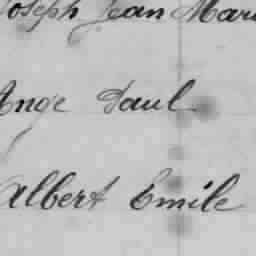 Joseph Jean Mari
Ange Paul
Albert Emile